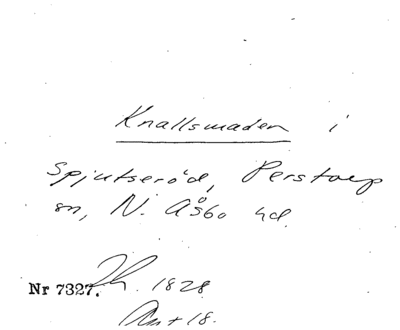 Knallsmaden i
Spjutseröd, Perstorp
sn, N. Åsbo hd.
Nr 7327. 1828
18.